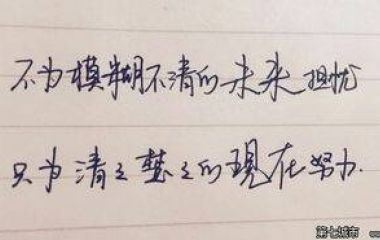 不为模糊不清的未来担忧
只为清清楚楚的现在努力.
第七城市